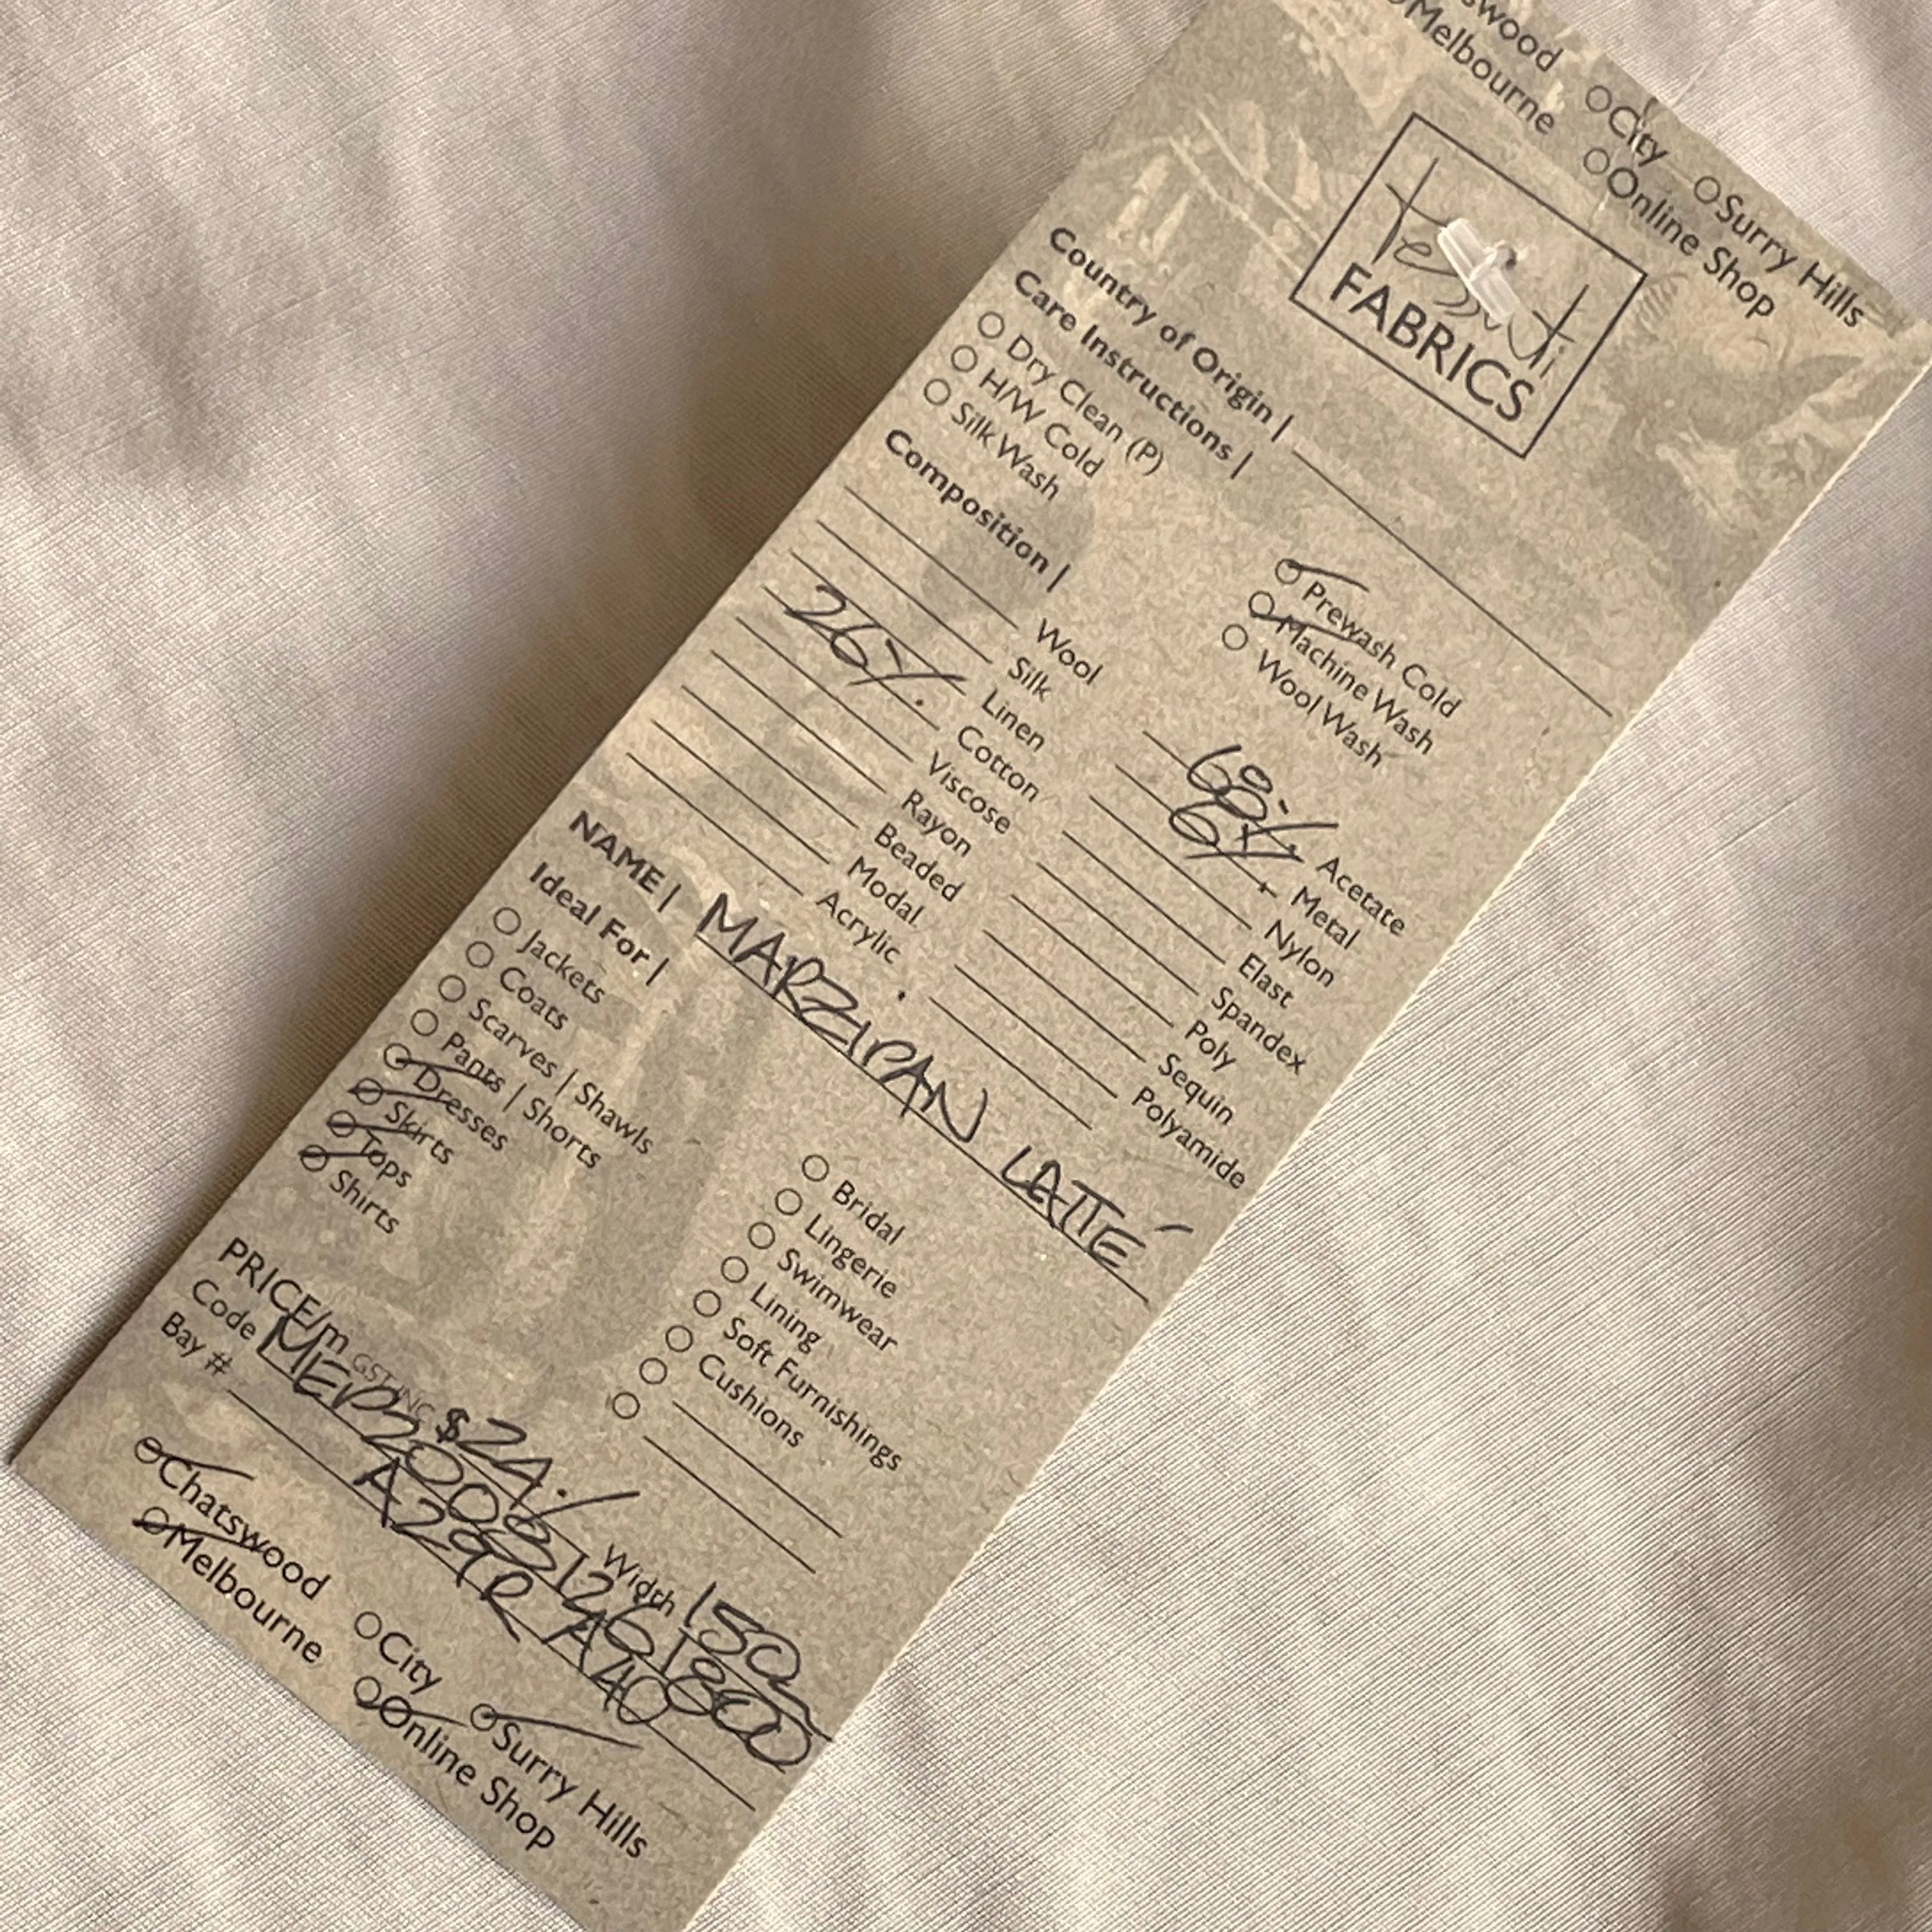 swood
Melbourne
City
Online Shop
Surry Hills
tessuti
FABRICS
Country of Origin |
Care Instructions |
Dry Clean (P) Prewash Cold
H/W Cold Machine Wash
Silk Wash Wool Wash
Composition |
Wool 68% Acetate
Silk 6% Metal
Linen Nylon
26% Cotton Elast
Viscose Spandex
Rayon Poly
Beaded Sequin
Modal Polyamide
Acrylic
NAME | MARZIPAN LATTÉ
Ideal For |
Jackets Bridal
Coats Lingerie
Scarves | Shawls Swimwear
Pants | Shorts Lining
Dresses Soft Furnishings
Skirts Cushions
Tops
Shirts
PRICE/m GST INC $24. Width 150
Code
Bay # A29R A40
Chatswood City Surry Hills
Melbourne Online Shop